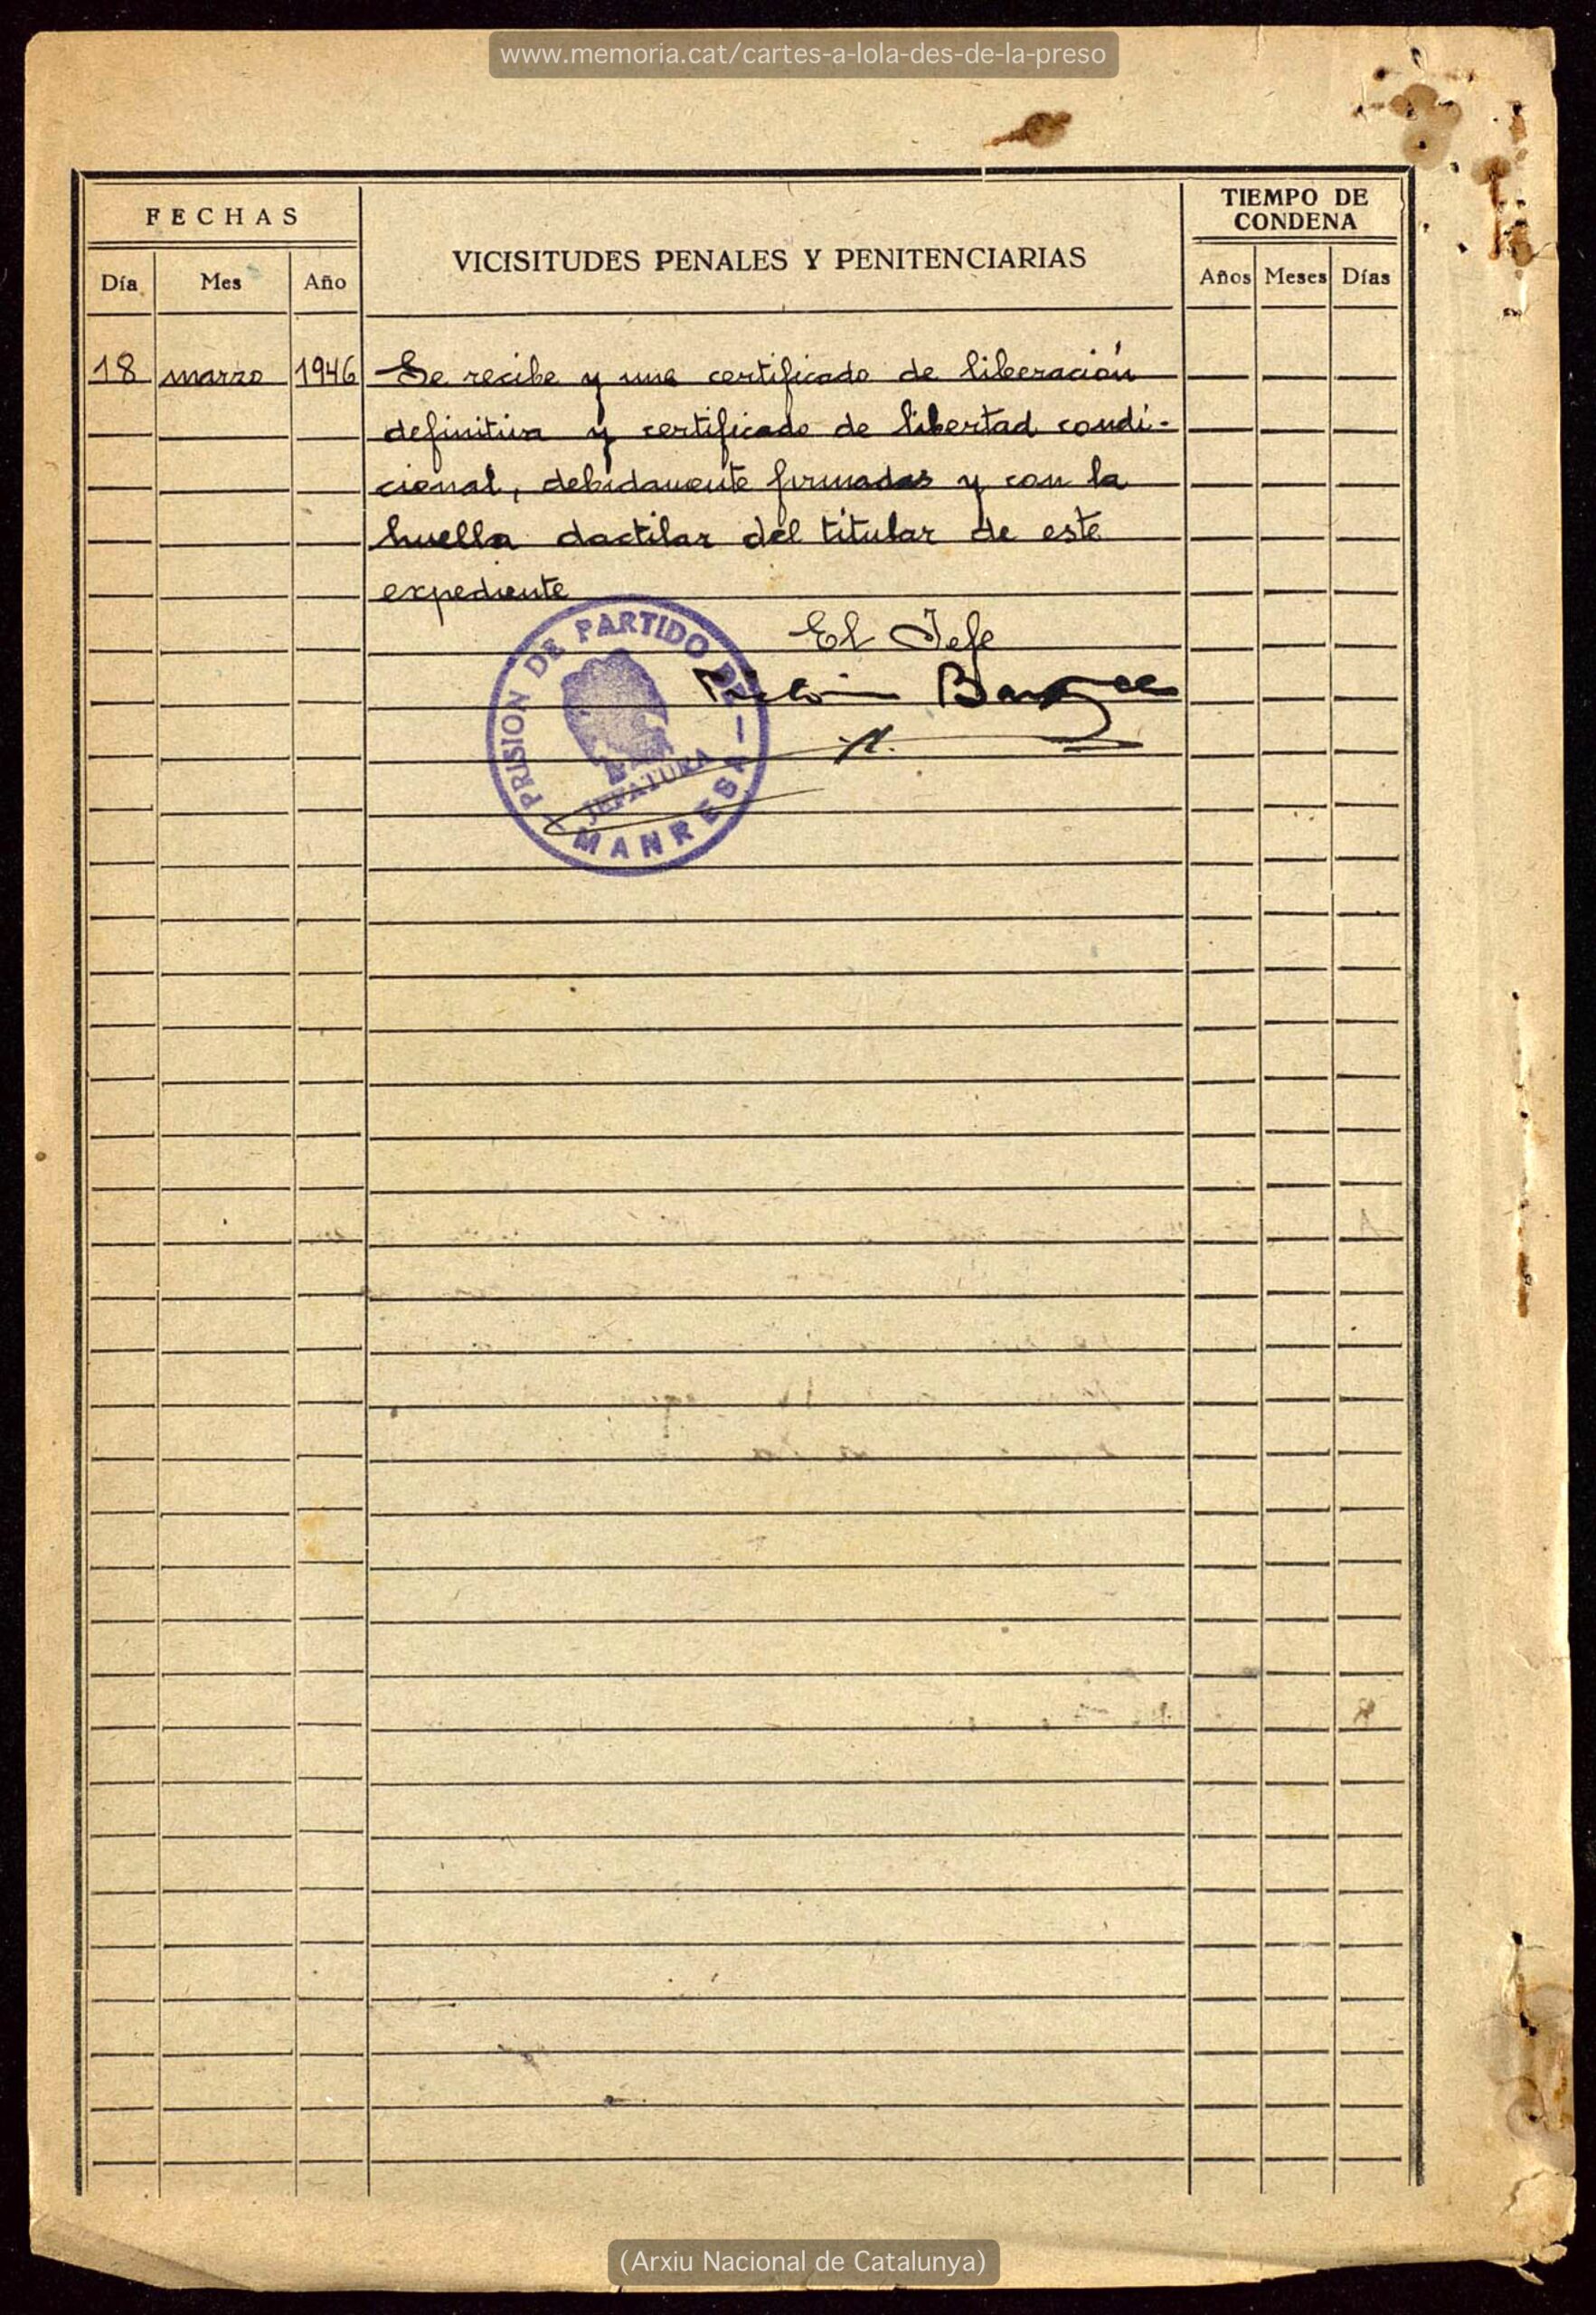 www.memoria.cat/cartes-a-lola-des-de-la-preso
FECHAS
VICISITUDES PENALES Y PENITENCIARIAS
TIEMPO DE
CONDENA
Día Mes Año
Años Meses Días
18 marzo 1946 Se recibe y une certificado de liberación
definitiva y certificado de libertad condi-
cional, debidamente firmadas y con la
huella dactilar del titular de este
expediente
El Jefe
PRISION DE PARTIDO DE
JEFATURA
MANRESA
(Arxiu Nacional de Catalunya)